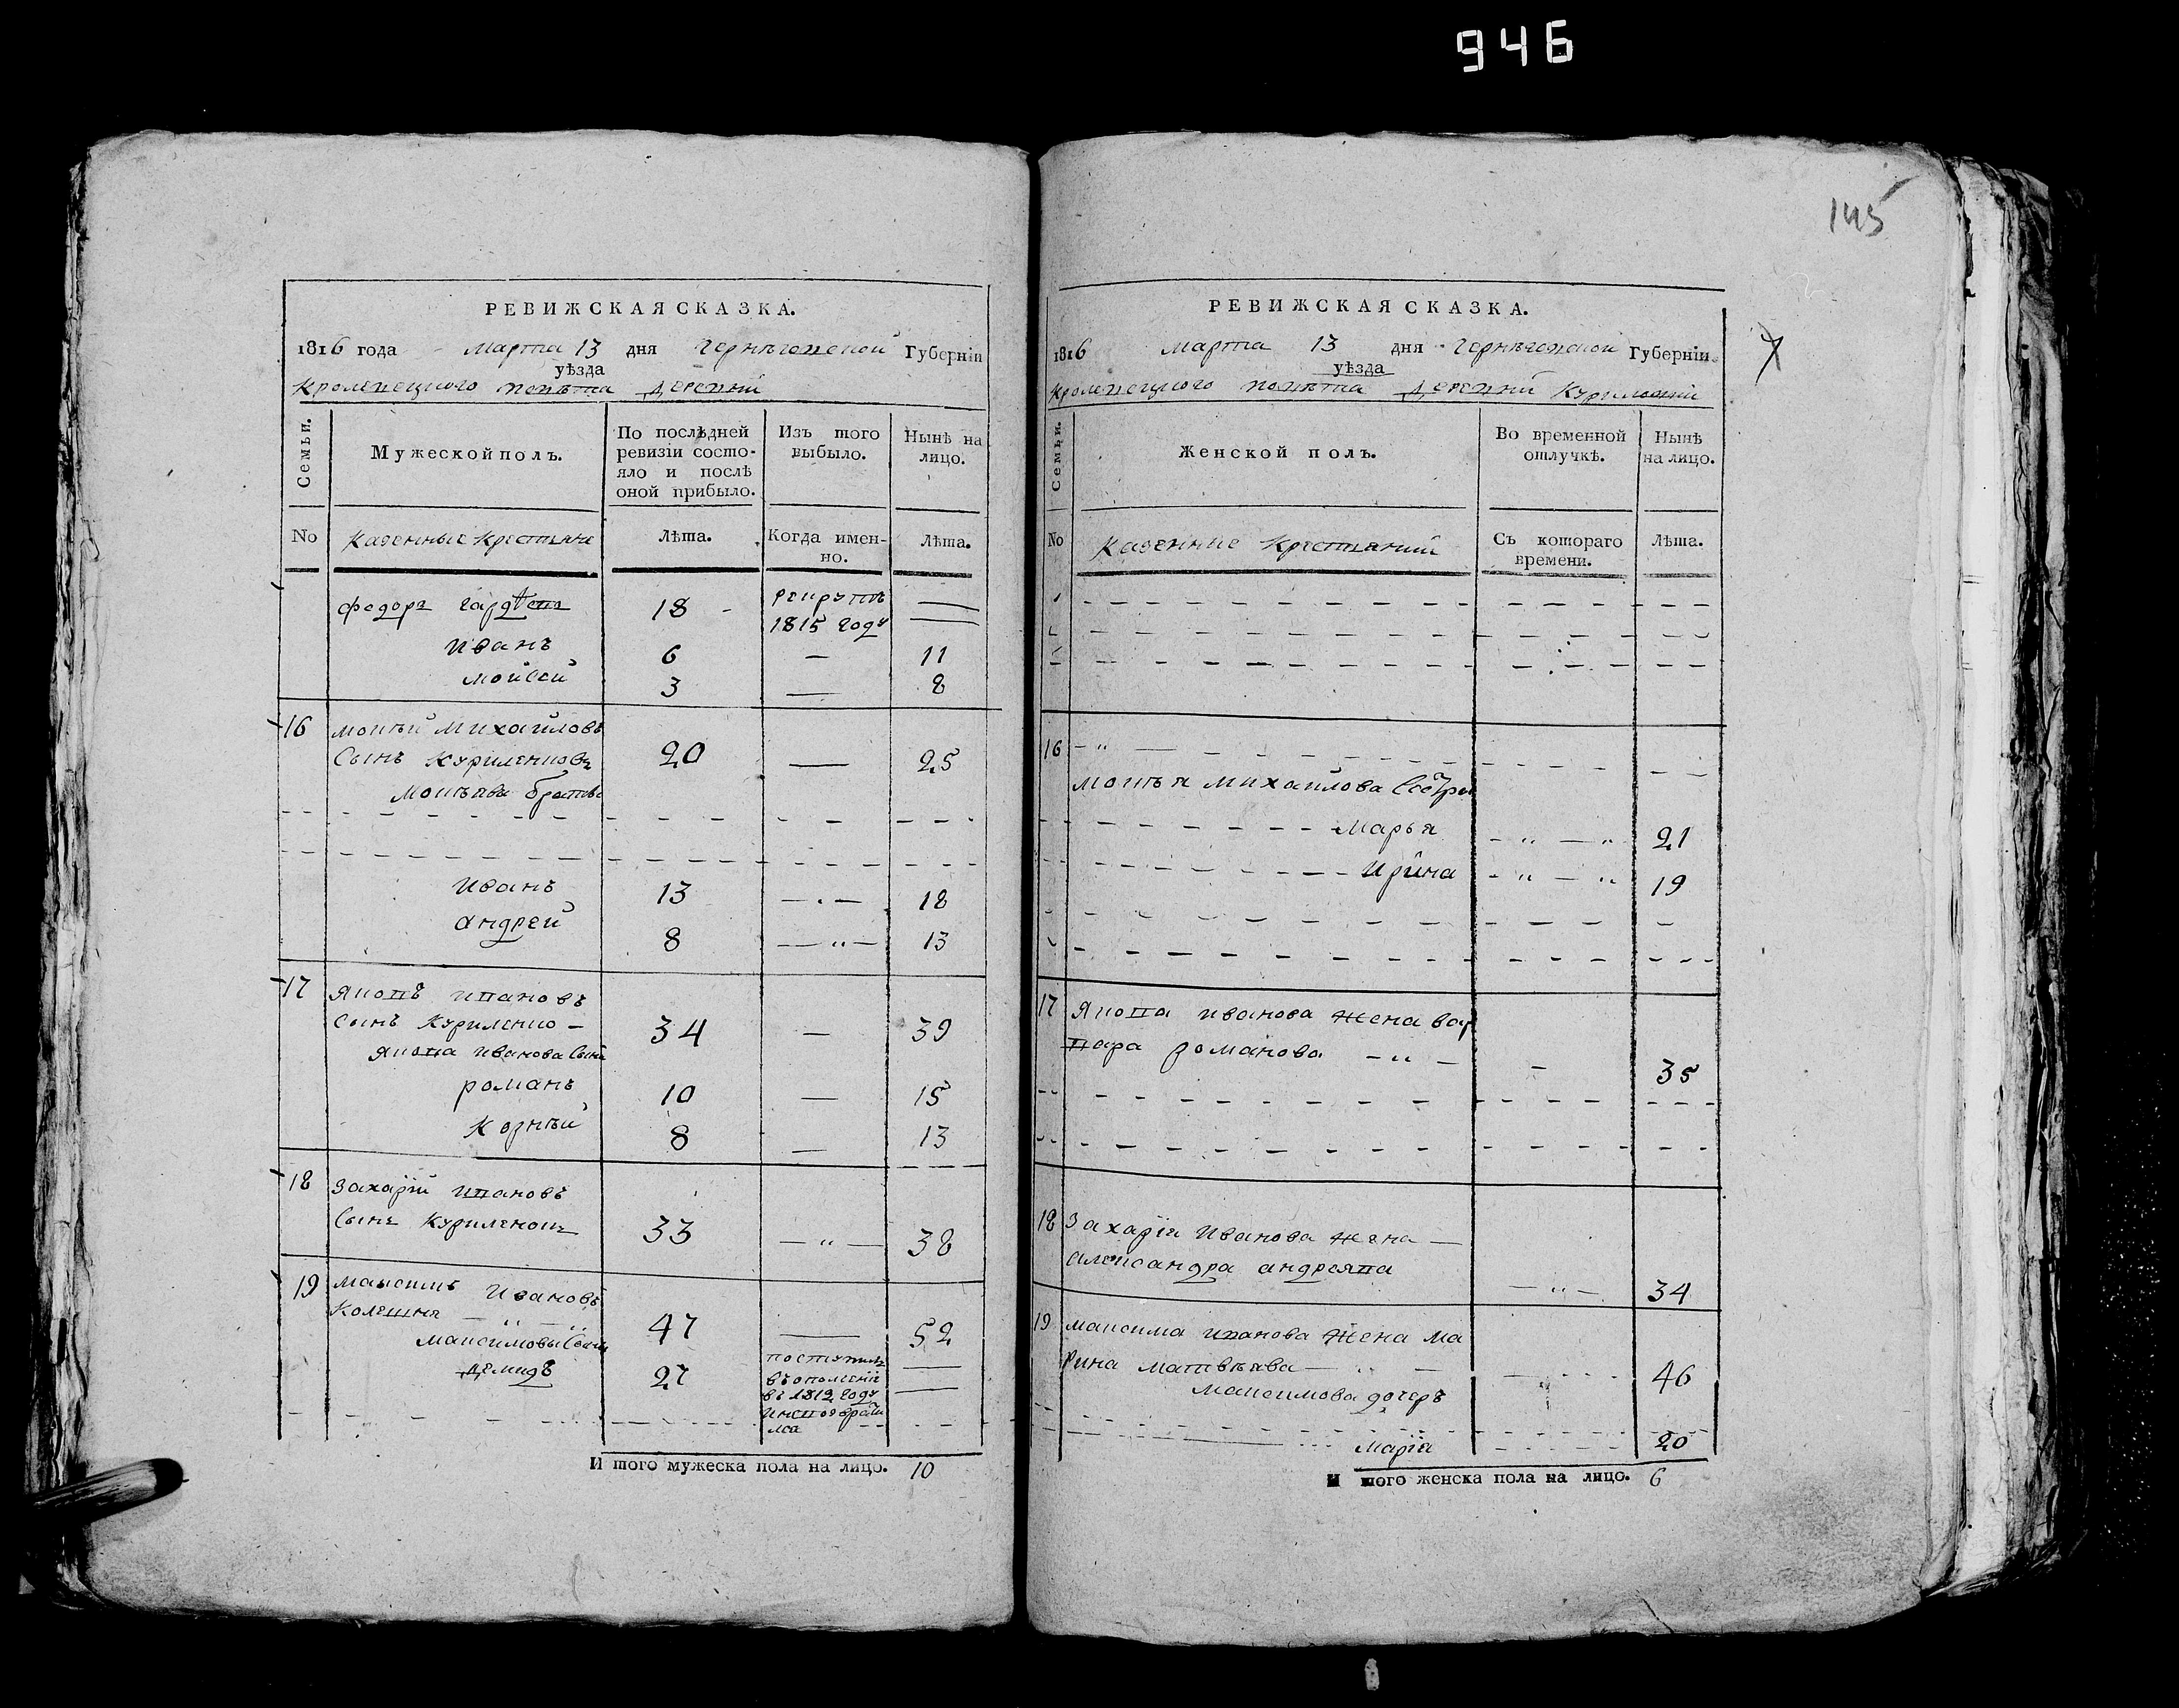 946
145
РЕВИЖСКАЯ СКАЗКА.
1816 года Марта 13 дня Чернѣгенской Губерніи
уѣзда
Кролевецкого повѣта деревни
Семьи.
Мужеской полъ.
По послѣдней ревизіи состо-
яло и послѣ
оной прибыло.
Изъ того
выбыло.
Нынѣ на
лицо.
No
Казенные крестьяне
Лѣта.
Когда имен-
но.
Лѣта.
Федоръ 18 рекрутъ
1815 году
Иванъ 6 — 11
Мойсей 3 — 8
16 Мокѣй Михайловъ
Сынъ Куриленковъ 20 — 25
Мокѣева братья
Иванъ 13 — 18
андрей 8 — 13
17 Яковъ Ивановъ
Сынъ Куриленко — 34 — 39
Якова Иванова Сыны
романъ 10 — 15
Корнѣй 8 — 13
18 Захарій Ивановъ
Сынъ 33 — 38
19 Максимъ Ивановъ
47 — 52
Максимовы Сыны
Демидъ 27 поступилъ
въ ополченіе
въ 1812 году
и невозврати
лса
И того мужеска пола на лицо. 10
РЕВИЖСКАЯ СКАЗКА.
1816 Марта 13 дня Чернѣгенской Губерніи.
уѣзда
Кролевецкого повѣта деревни
Семьи.
Женской полъ.
Во временной
отлучкѣ.
Нынѣ
на лицо.
No
Казенние Крестьянки
Съ котораго
времени.
Лѣта.
16
Мокѣя Михайлова Сестры
Марья 21
Ирина 19
17 Якова Иванова жена Вар
вара романова 35
18 Захарія Иванова жена —
александра андреява 34
19 Максима Иванова жена Ма
рина Матвѣева — 46
Максимова дочеръ
Марія 20
И того женска пола на лицо. 6